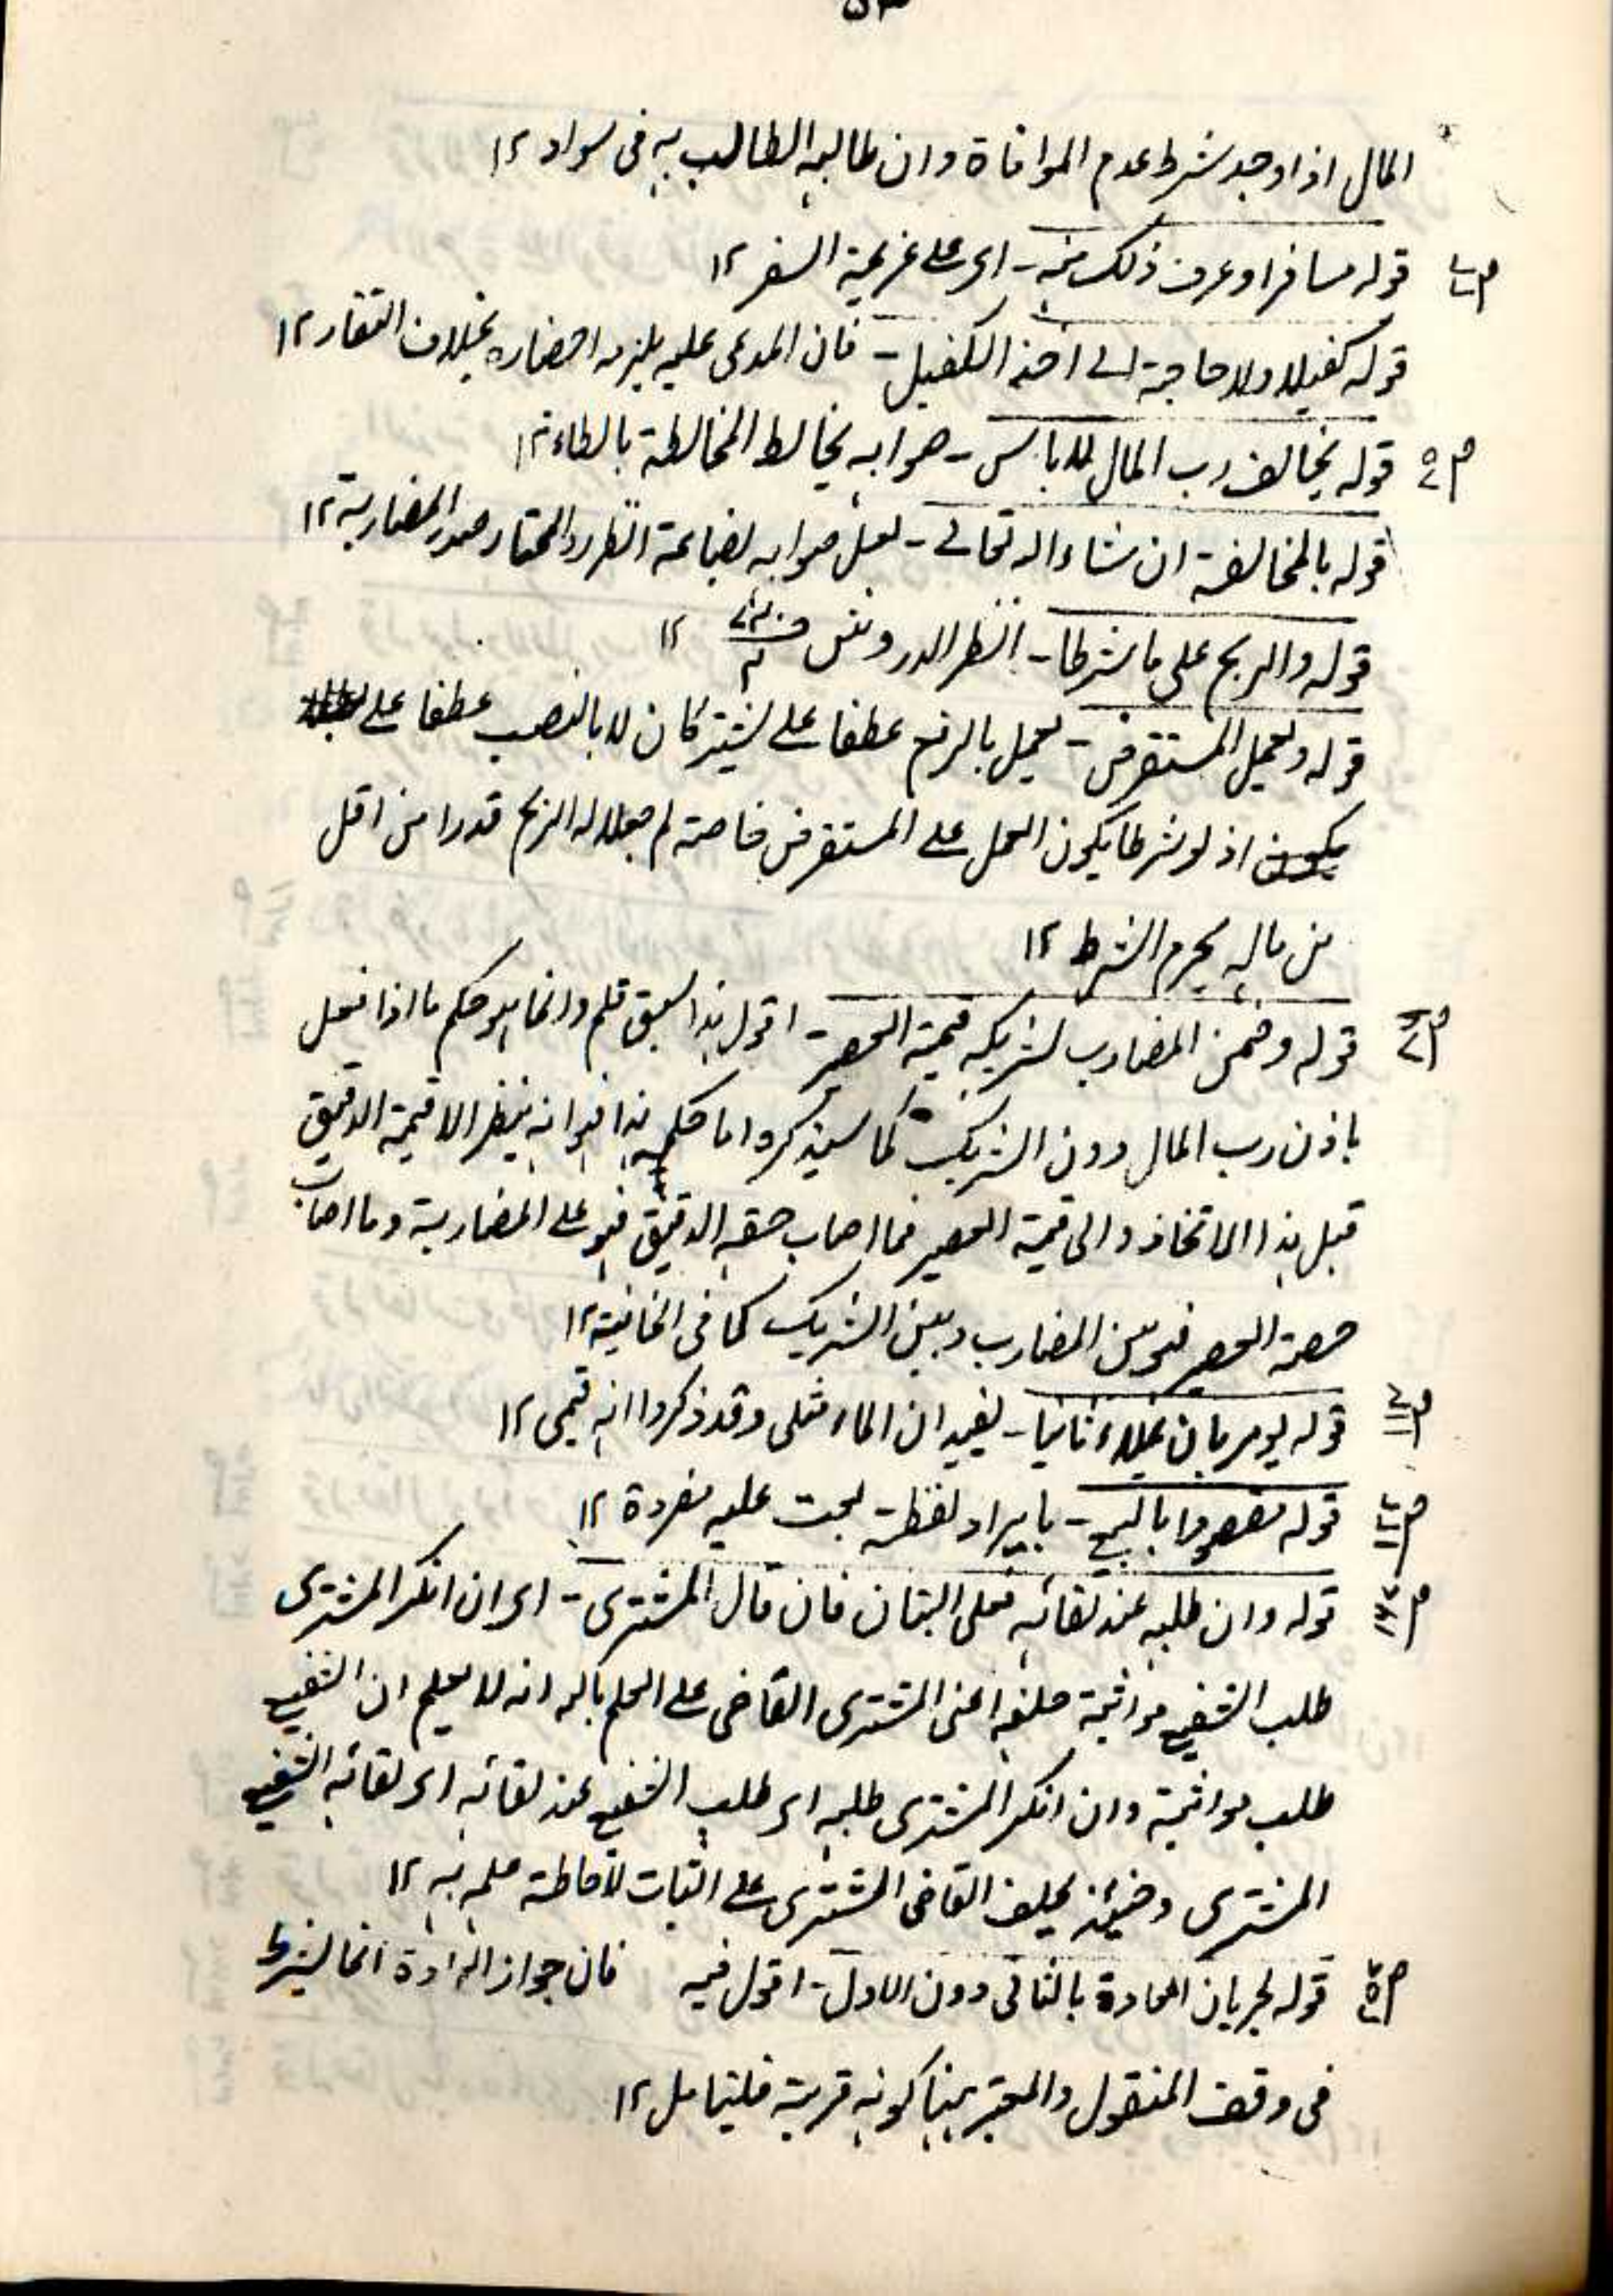 المال اذا وجد شرط عدم الموافاة وان طالبه الطالب به فى سواد ١٢
قوله مسافرا وعرف ذلك منه - اى على عزيمة السفر ١٢
قوله كفيلا ولا حاجة الى اخذ الكفيل - فان المدعى عليه يلزمه احضاره بخلاف العقار ١٢
قوله يخالف رب المال للاباس - صوابه يخالط المخالطة بالطاء ١٢
قوله بالمخالفة ان شاء الله تعالى - لعل صوابه بضاعة انظر رد المحتار صدر المضاربة ١٢
قوله والربح على ما شرطا - انظر الدر ونفس ١٢
قوله وبعمل المستقرض - يعمل بالرفع عطفا على يشتركان لا بالنصب عطفا على
يكون اذ لو شرطا يكون العمل على المستقرض خاصة لم يجعلا له الربح قدرا من اقل
من ماله يحرم الشرط ١٢
قوله وضمن المضارب لشريكه قيمة العصير - اقول هذا سبق قلم وانما هو حكم ما اذا فعل
باذن رب المال دون الشريك كما سيذكره اما حكم هذا فهو انه ينظر الا قيمة الدقيق
قبل هذا الاتخاذ والى قيمة العصير فما اصاب حصة الدقيق فهو على المضاربة وما اصاب
حصة العصير فهو بين المضارب وبين الشريك كما فى الخانية ١٢
قوله يومر بان يملاء ثانيا - يفيد ان الماء مثلى وقد ذكروا انه قيمى ١٢
قوله بالبيع - بايراد لفظة بحت عليه مفردة ١٢
قوله وان طلبه عند لقائه فعلى البتات فان قال المشترى - اى ان انكر المشترى
طلب الشفيع مواثبة حلفه اعنى المشترى القاضى على العلم بالله انه لا يعلم ان الشفيع
طلب مواثبة وان انكر المشترى طلبه اى طلب الشفيع عند لقائه اى لقائه الشفيع
المشترى وحينئذ يحلف القاضى المشترى على البتات لاحاطة علمه به ١٢
قوله لجريان العادة بالثانى دون الاول - اقول فيه فان جواز العادة انما يشترط
فى وقف المنقول والمعتبر هنا كونه قربة فليتامل ١٢